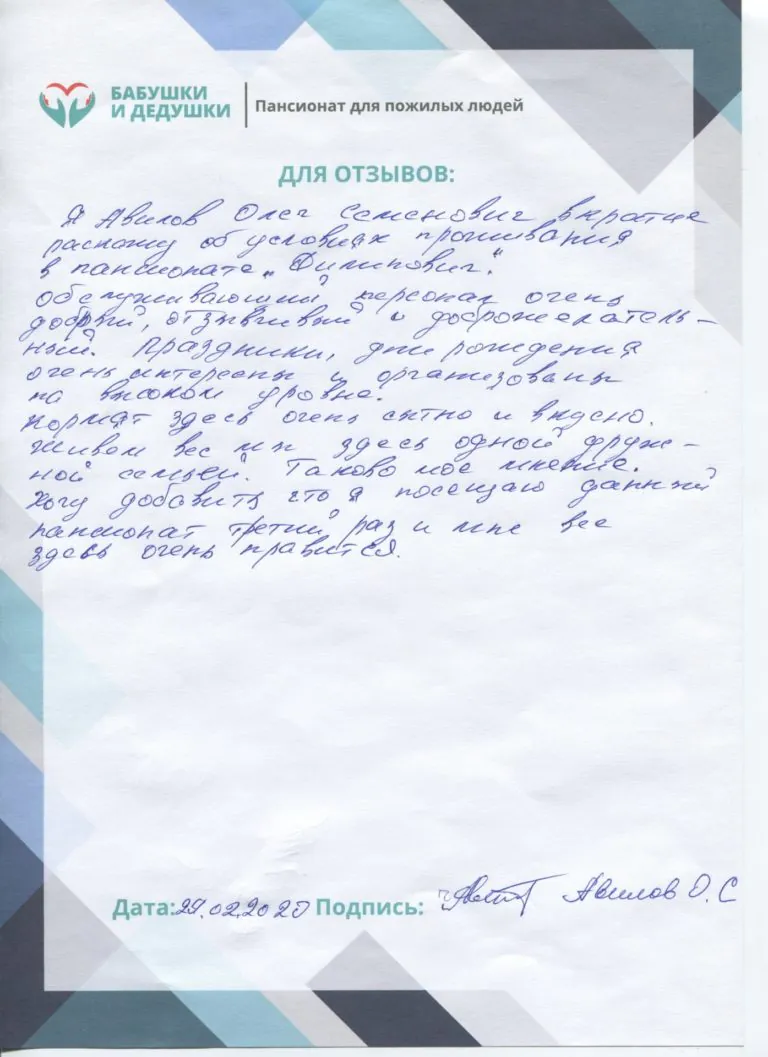 БАБУШКИ
И ДЕДУШКИ
Пансионат для пожилых людей
ДЛЯ ОТЗЫВОВ:
Я Авилов Олег Семенович вкратце
раскажу об условиях проживания
в пансионате „Филипович".
Обслуживающий персонал очень
добрый, отзывчивый и доброжелатель-
ный. Праздники, дни рождения
очень интересны и организованы
на высоком уровне.
Кормят здесь очень сытно и вкусно.
Живем все мы здесь одной друж-
ной семьей. Таково мое мнение.
Хочу добавить что я посещаю данный
пансионат третий раз и мне все
здесь очень нравится.
Дата: 29.02.2020 Подпись: Авилов О.С